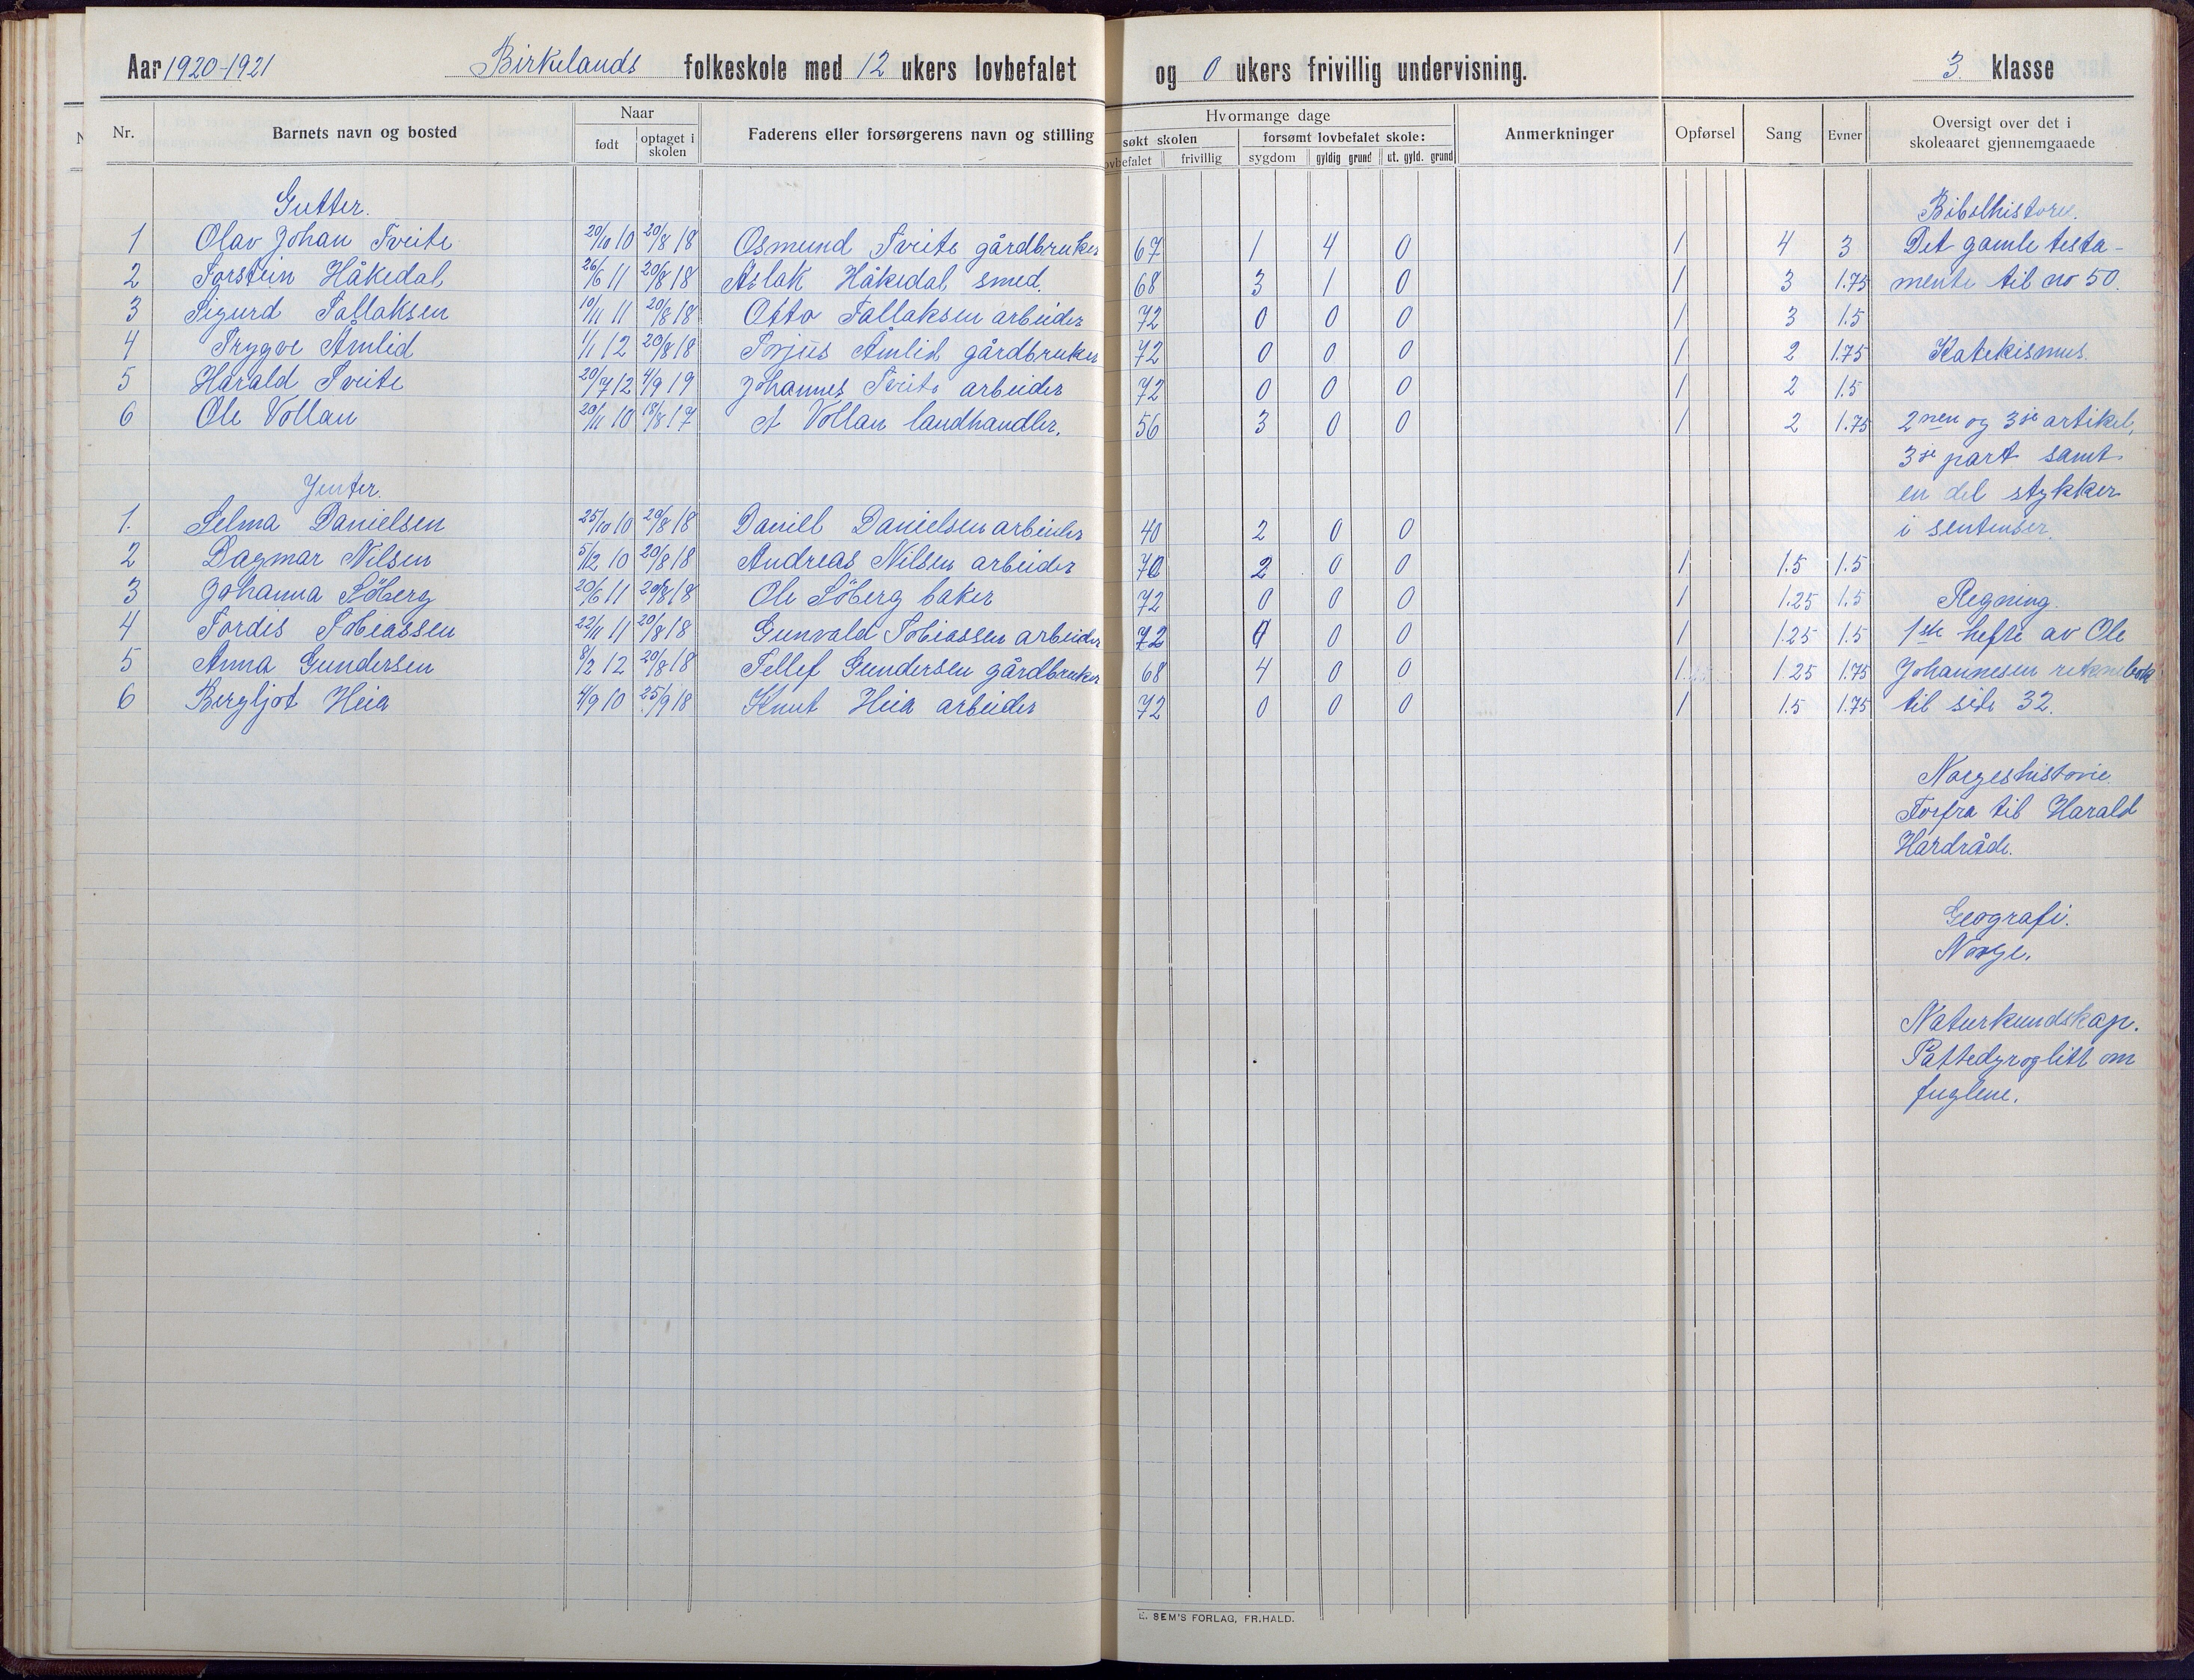 Aar 1920-1921 Birkelands folkeskole med 12 ukers lovbefalet og 0 ukers frivillig undervisning. 3. klasse
Nr. Barnets navn og bosted Naar Faderens eller forsørgerens navn og stilling Hvormange dage Anmerkninger Opførsel Sang Evner Oversigt over det i skoleaaret gjennemgaaede
født optaget i skolen søkt skolen forsømt lovbefalet skole:
frivillig sygdom gyldig grund ut. gyld. grund
Gutter. Bibelhistorie.
1 Olav Johan Tveite 20/10 10 20/8 18 Osmund Tveite gårdbruker 67 1 4 0 1 4 3 Det gamle testa-
2 Torstein Håkedal 26/6 11 20/8 18 Aslak Håkedal smed. 68 3 1 0 1 3 1.75 mente til no 50.
3 Sigurd Tallaksen 19/11 11 20/8 18 Otto Tallaksen arbeider 72 0 0 0 1 3 1.5
4 Trygve Åmlid 1/1 12 20/8 18 Torjus Åmlid gårdbruker 72 0 0 0 1 2 1.75 Katekismus.
5 Harald Tveite 20/7 12 4/9 19 Johannes Tveite arbeider 72 0 0 0 1 2 1.5
6 Ole Vollan 20/11 10 18/8 17 A Vollan landhandler. 56 3 0 0 1 2 1.75 2nen og 3je artikel,
3je part samt
Jenter. en del stykker
1. Selma Danielsen 25/10 10 20/8 18 Daniel Danielsen arbeider 40 2 0 0 i sentenser.
2 Dagmar Nilsen 5/12 10 20/8 18 Andreas Nilsen arbeider 70 2 0 0 1 1.5 1.5
3 Johanna Söberg 20/6 11 20/8 18 Ole Söberg baker 72 0 0 0 1 1.25 1.5 Regning.
4 Tordis Tobiassen 22/11 11 20/8 18 Gunvald Tobiassen arbeider 72 0 0 0 1 1.25 1.5 1ste hefte av Ole
5 Anna Gundersen 8/2 12 20/8 18 Tellef Gundersen gårdbruker 68 4 0 0 1 1.25 1.75 Johannesen reknebok
6 Bergljot Heia 4/9 10 25/9 18 Knut Heia arbeider 72 0 0 0 1 1.5 1.75 til side 32.
Norgeshistorie
Forfra til Harald
Hardråde.
Geografi.
Norge.
Naturkundskap.
Pattedyr og litt om
fuglene.
E. SEM'S FORLAG, FR.HALD.